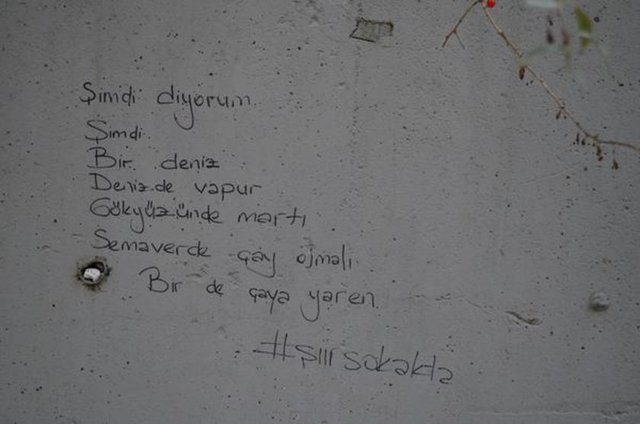 Şimdi diyorum
Şimdi
Bir deniz
Denizde vapur
Gökyüzünde martı
Semaverde çay olmalı
Bir de çaya yaren
#şiirsokakta